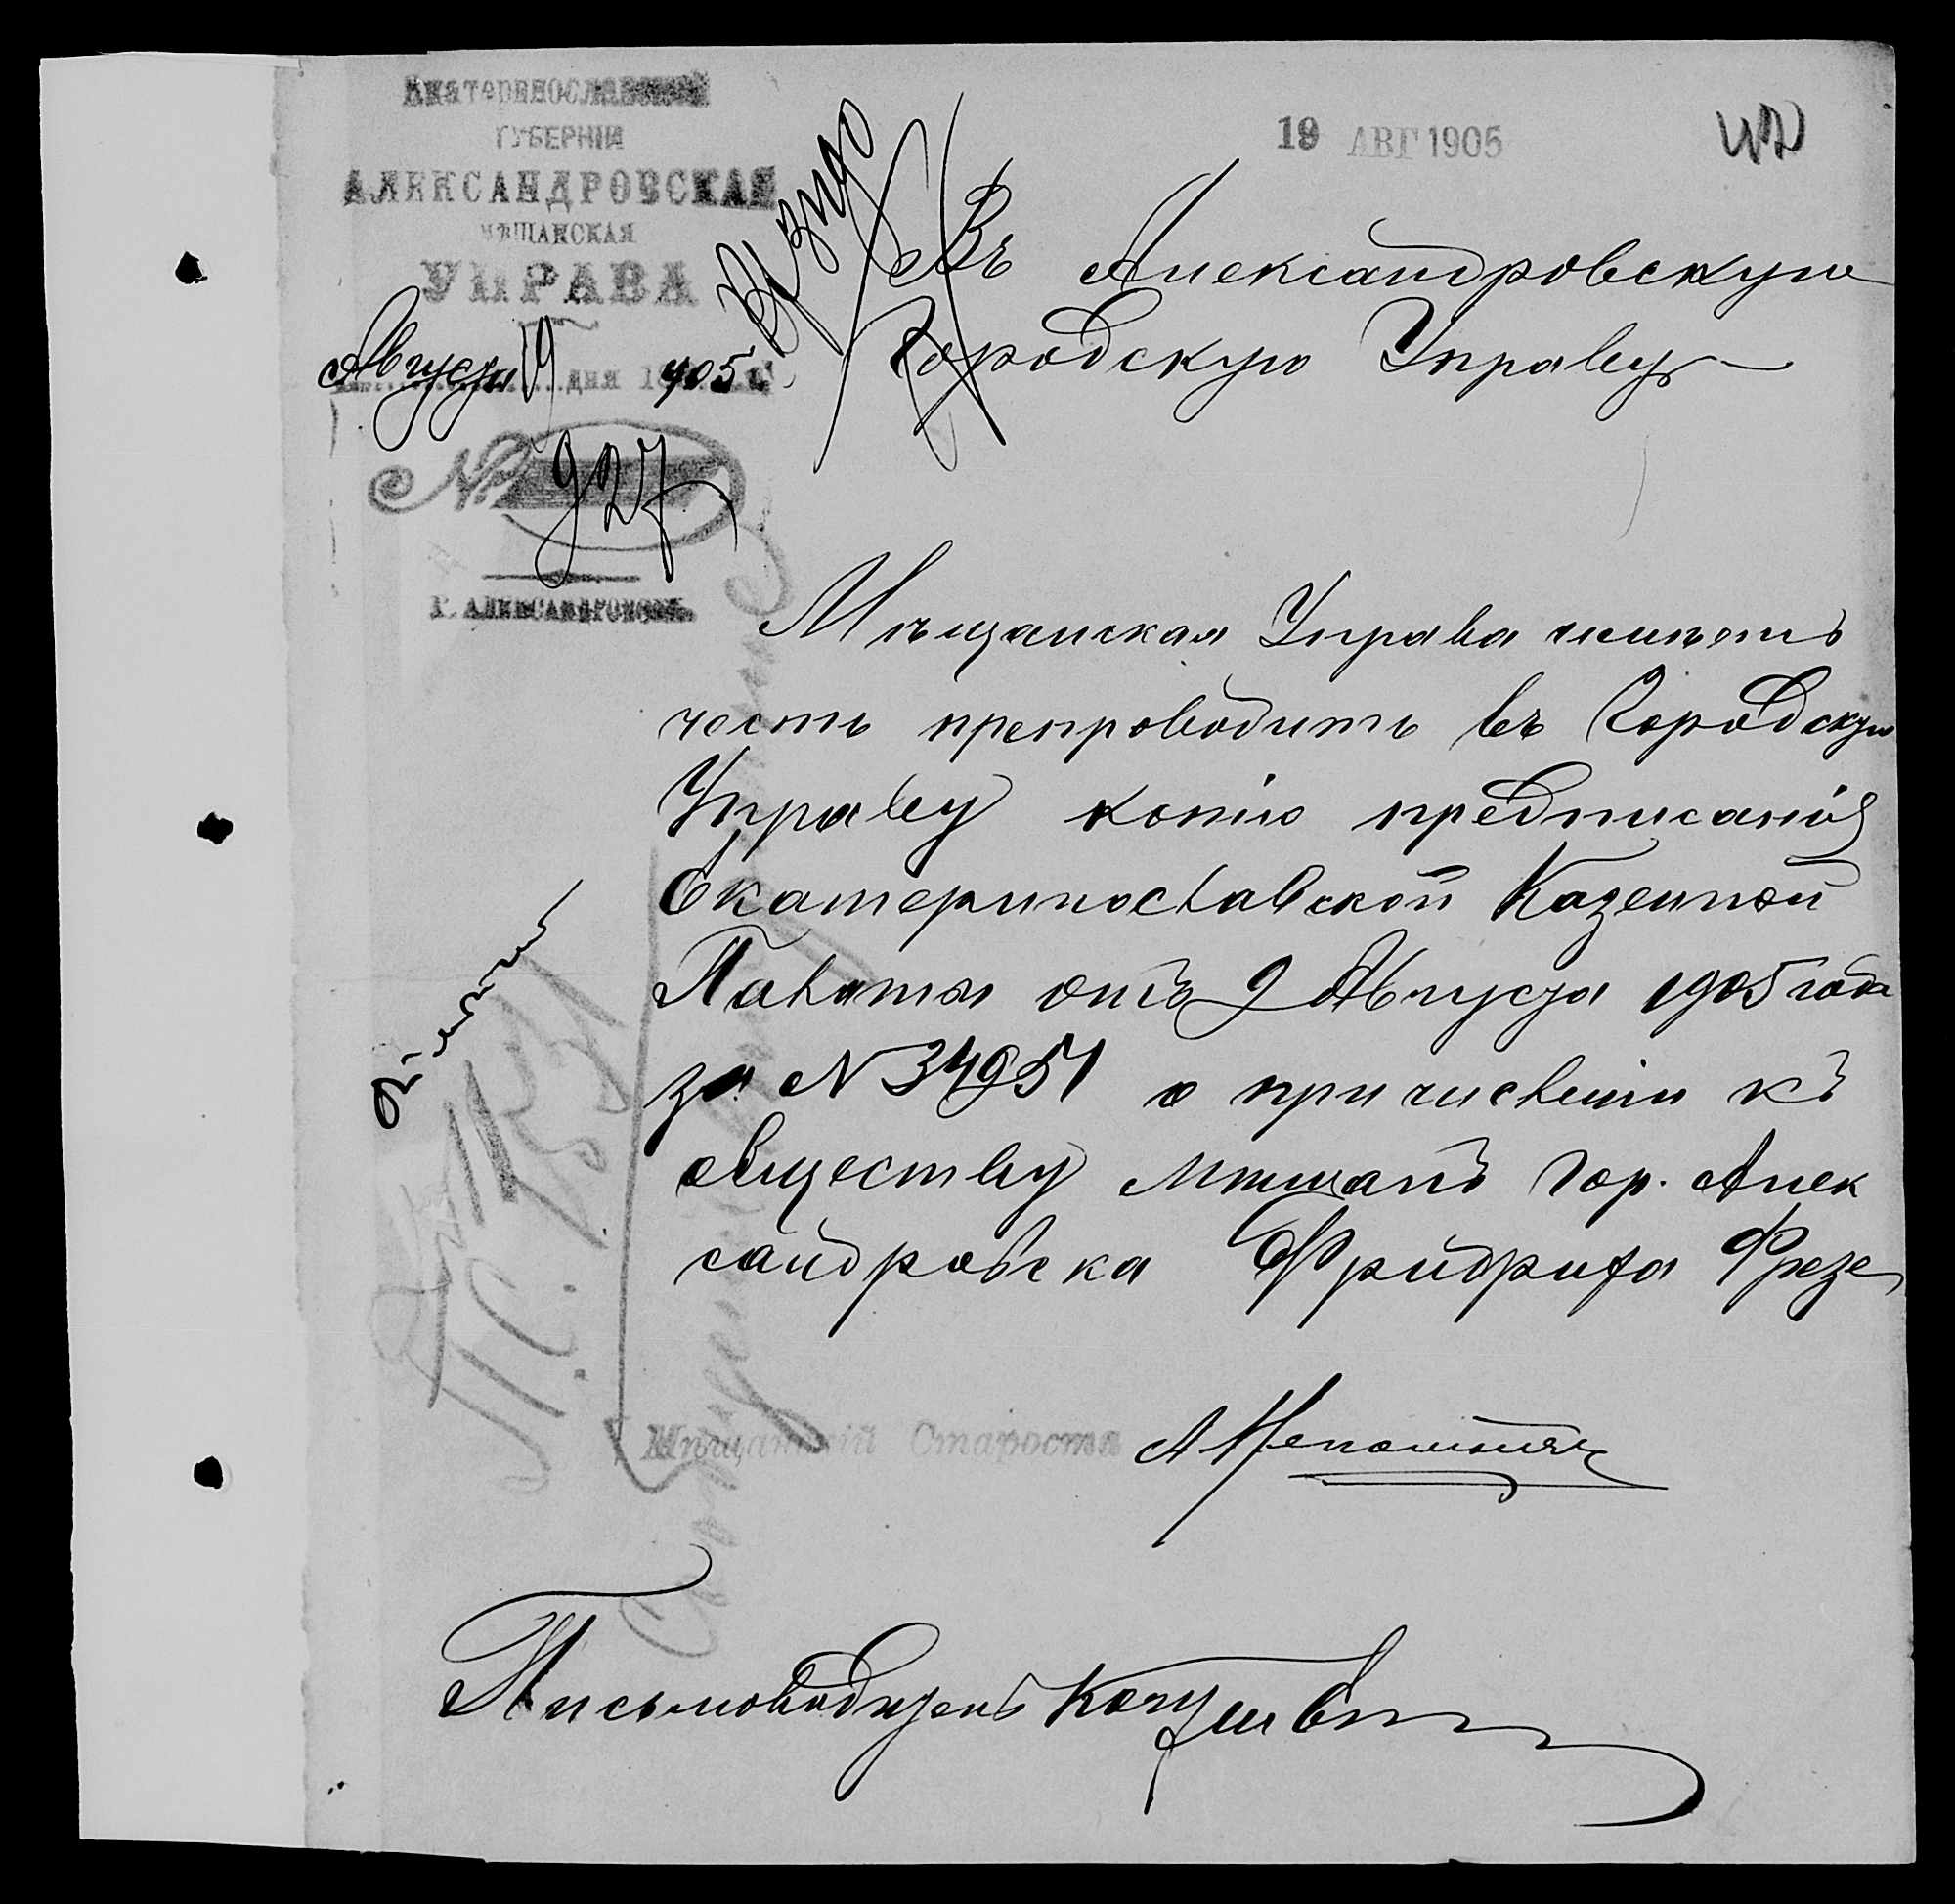 Екатеринославской
ГУБЕРНІИ
АЛЕКСАНДРОВСКАЯ
МѢЩАНСКАЯ
УПРАВА
Августа 19 дня 1905 г.
№ 927
Г. АЛЕКСАНДРОВСКЪ
19 АВГ 1905
42
Въ Александровскую
Городскую Управу
Мѣщанская Управа имѣетъ
честь препроводить въ Городскую
Управу копію предписанія
Екатеринославской Казенной
Палаты отъ 9 Августа 1905 года
за N 34951 о причисленіи къ
обществу мѣщанъ гор. Алек
сандровска Фридриха Фрезе
Мѣщанскій Староста
Письмоводитель